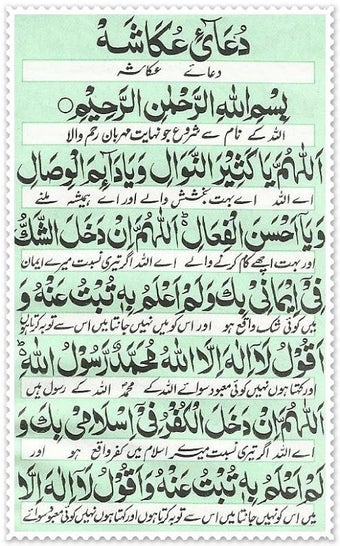 دُعَائِ عُكَاشَه
دعائے عکاشہ
بِسْمِ اللهِ الرَّحْمٰنِ الرَّحِيْمِ
اللہ کے نام سے شروع جو نہایت مہربان رحم والا
اَللّٰهُمَّ يَا كَثِيْرَ النَّوَالِ وَيَا دَآئِمَ الْوِصَالِ
اے اللہ اے بہت بخشش والے اور اے ہمیشہ ملنے
وَيَا اَحْسَنَ الْفِعَالِ اَللّٰهُمَّ اِنْ دَخَلَ الشَّكُّ
اور بہت اچھے کام کرنے والے اے اللہ اگر تیری نسبت میرے ایمان
فِيْ اِيْمَانِيْ بِكَ وَلَمْ اَعْلَمْ بِهٖ تُبْتُ عَنْهُ وَ
میں کوئی شک واقع ہو اور اس کو میں نہیں جانتا میں اس سے توبہ کرتا ہوں
اَقُوْلُ لَآ اِلٰهَ اِلَّا اللهُ مُحَمَّدٌ رَّسُوْلُ اللهِ ط
اور کہتا ہوں نہیں کوئی معبود سوائے اللہ کے محمدؐ اللہ کے رسول ہیں
اَللّٰهُمَّ اِنْ دَخَلَ الْكُفْرُ فِيْ اِسْلَامِيْ بِكَ وَ
اے اللہ اگر تیری نسبت میرے اسلام میں کفر واقع ہو اور
لَمْ اَعْلَمْ بِهٖ تُبْتُ عَنْهُ وَاَقُوْلُ لَآ اِلٰهَ اِلَّا
اس کو میں نہیں جانتا میں اس سے توبہ کرتا ہوں اور کہتا ہوں نہیں کوئی معبود سوائے